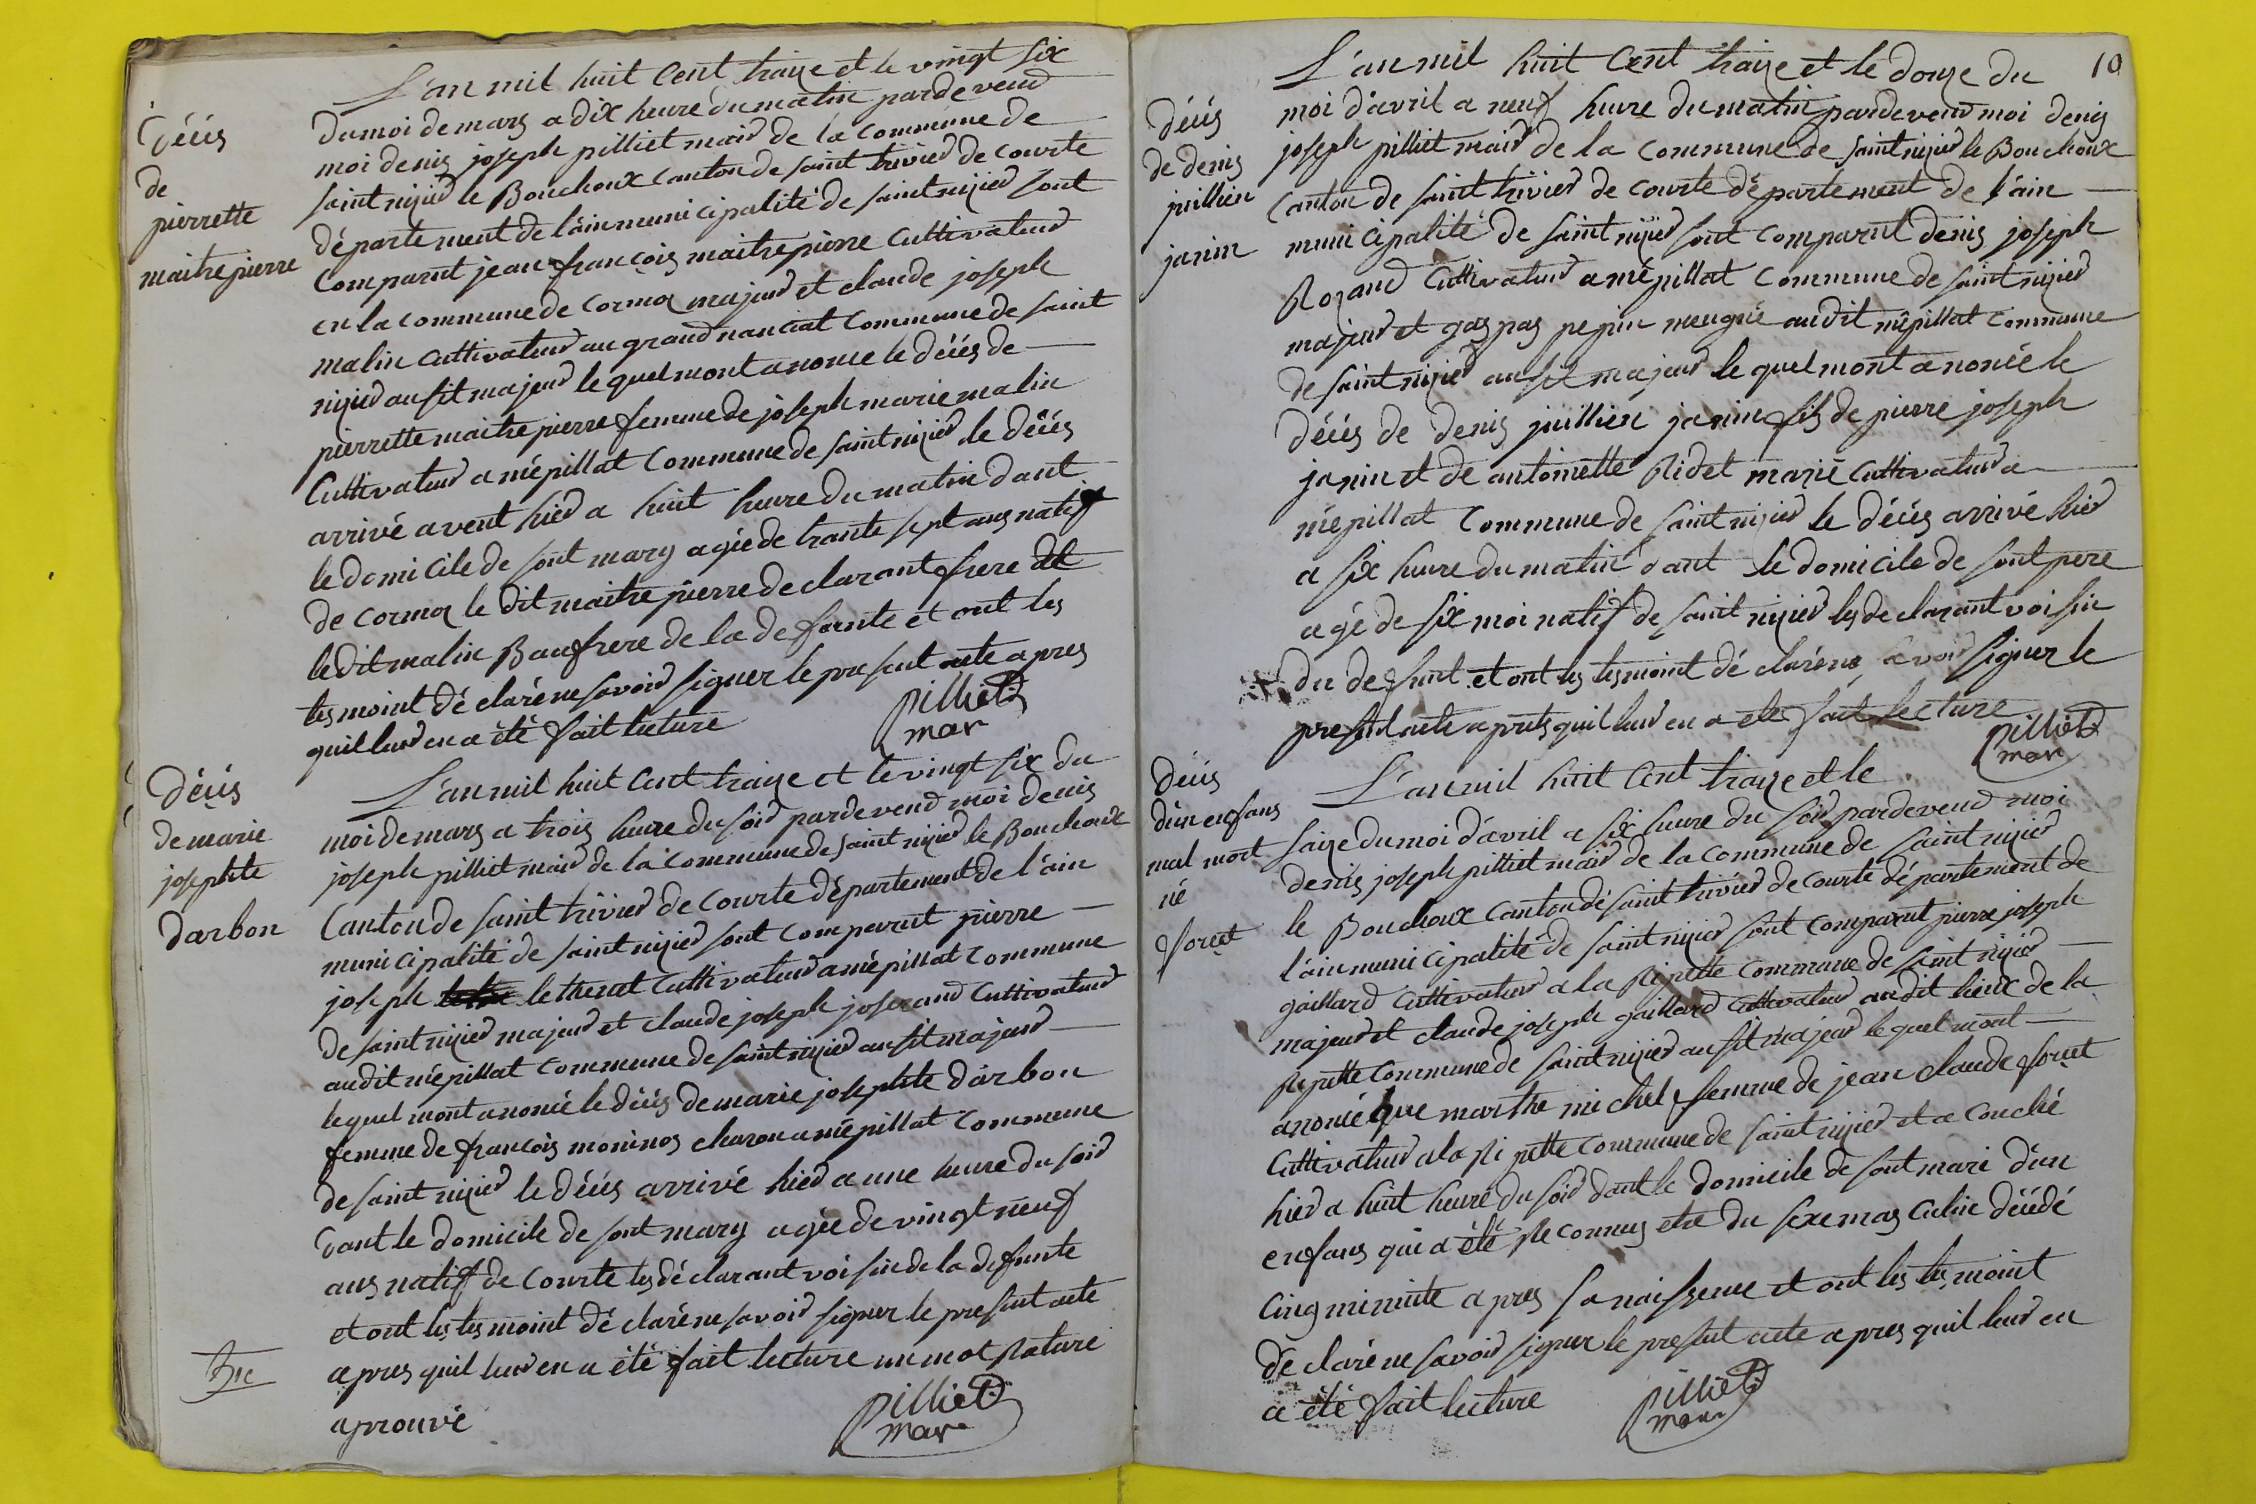 Décés
de
pierrette
maitrepierre
L'an mil huit Cent traize et le vingt six
du moi de mars a dix heure du matin pardevend
moi denis joseph pilliet maire de la commune de
saint nizier le Bouchoux canton de saint trivier de courte
département de l'ain municipalité de saint nizier sont
Comparut jean françois maitrepierre Cultivateur
en la commune de cormoz majeur et claude joseph
malin cultivateur au grand nanciat commune de saint
nizier ausit majeur le quel mont anonce le décés de
pierrette maitrepierre femme de joseph marie malin
Cultivateur a mépillat Commune de saint nizier le décés
arrivé avent hier a huit heure du matin dant
le domicile de sont mary agée de trante sept ans natif
de cormoz le dit maitrepierre declarant frere de
le dit malin Baufrere de la defunte et ont les
tesmoint déclaréne savoir signer le present acte apres
quil leur en a été fait lecture
pilliet
mar
Décés
de marie
josephte
darbon
L'an mil huit Cent traize et le vingt six du
moi de mars a trois heure du soir pardevend moi denis
joseph pilliet maire de la commune de saint nizier le Bouchoux
Canton de saint trivier de courte département de l'ain
municipalité de saint nizier sont comparut pierre
joseph lethenet Cultivateur a mépillat commune
de saint nizier majeur et claude joseph joserand Cultivateur
audit mépillat commune de saint nizier ausit majeur
le quel mont anoncé le décés de marie josephte darbon
femme de francois moninos charon a mépillat commune
de saint nizier le décés arrivé hier a une heure du soir
dant le domicile de sont mary agée de vingt neuf
ans natif de Courte les déclarant voisin de la defunte
et ont les tesmoint déclaréne savoir signer le present acte
apres quil leur en a été fait lecture un mot rature
aprouvé
pilliet
mar
10
décés
de denis
juillien
janin
L'an mil huit Cent traize et le douze du
moi d'avril a neuf heure du matin pardevend moi denis
joseph pilliet maire de la commune de saint nizier le Bouchoux
Canton de saint trivier de courte département de l'ain
municipalité de saint nizier sont comparut denis joseph
Rozand Cultivateur a mépillat commune de saint nizier
majeur et gaspas pepin meugnié audit mépillat commune
de saint nizier ausit majeur le quel mont anoncée le
décés de denis juillien janin fils de pierre joseph
janin et de antoinette Ridet marié Cultivateur a
mépillat commune de saint nizier le décés arrivé hier
a six heure du matin dant le domicile de sont pere
agé de six moi natif de saint nizier les declarant voisin
du defunt et ont les tesmoint déclaréne savoir signer le
present acte aprés quil leur en a été fait lecture
pilliet
mar
Décés
d'un enfans
mal mort
né
foret
L'an mil huit Cent traize et le
saize du moi d'avril a six heure du soir pardevend moi
denis joseph pilliet maire de la commune de saint nizier
le Bouchoux canton de saint trivier de courte département de
l'ain municipalité de saint nizier sont comparut pierre joseph
gaillard Cultivateur a la Ripette commune de saint nizier
majeur et claude joseph gaillard Cultivateur audit lieux de la
Ripette commune de saint nizier ausit majeur le quel mont
anoncé que marthe michel femme de jean claude foret
Cultivateur a la Ripette commune de saint nizier et a couché
hier a huit heure du soir dant le domicile de sont mari d'un
enfans qui a été Reconnus etre du sexe masculin décédé
cinq minute apres sa naissence et ont les tesmoint
déclaréne savoir signer le present acte apres quil leur en
a été fait lecture
pilliet
mar